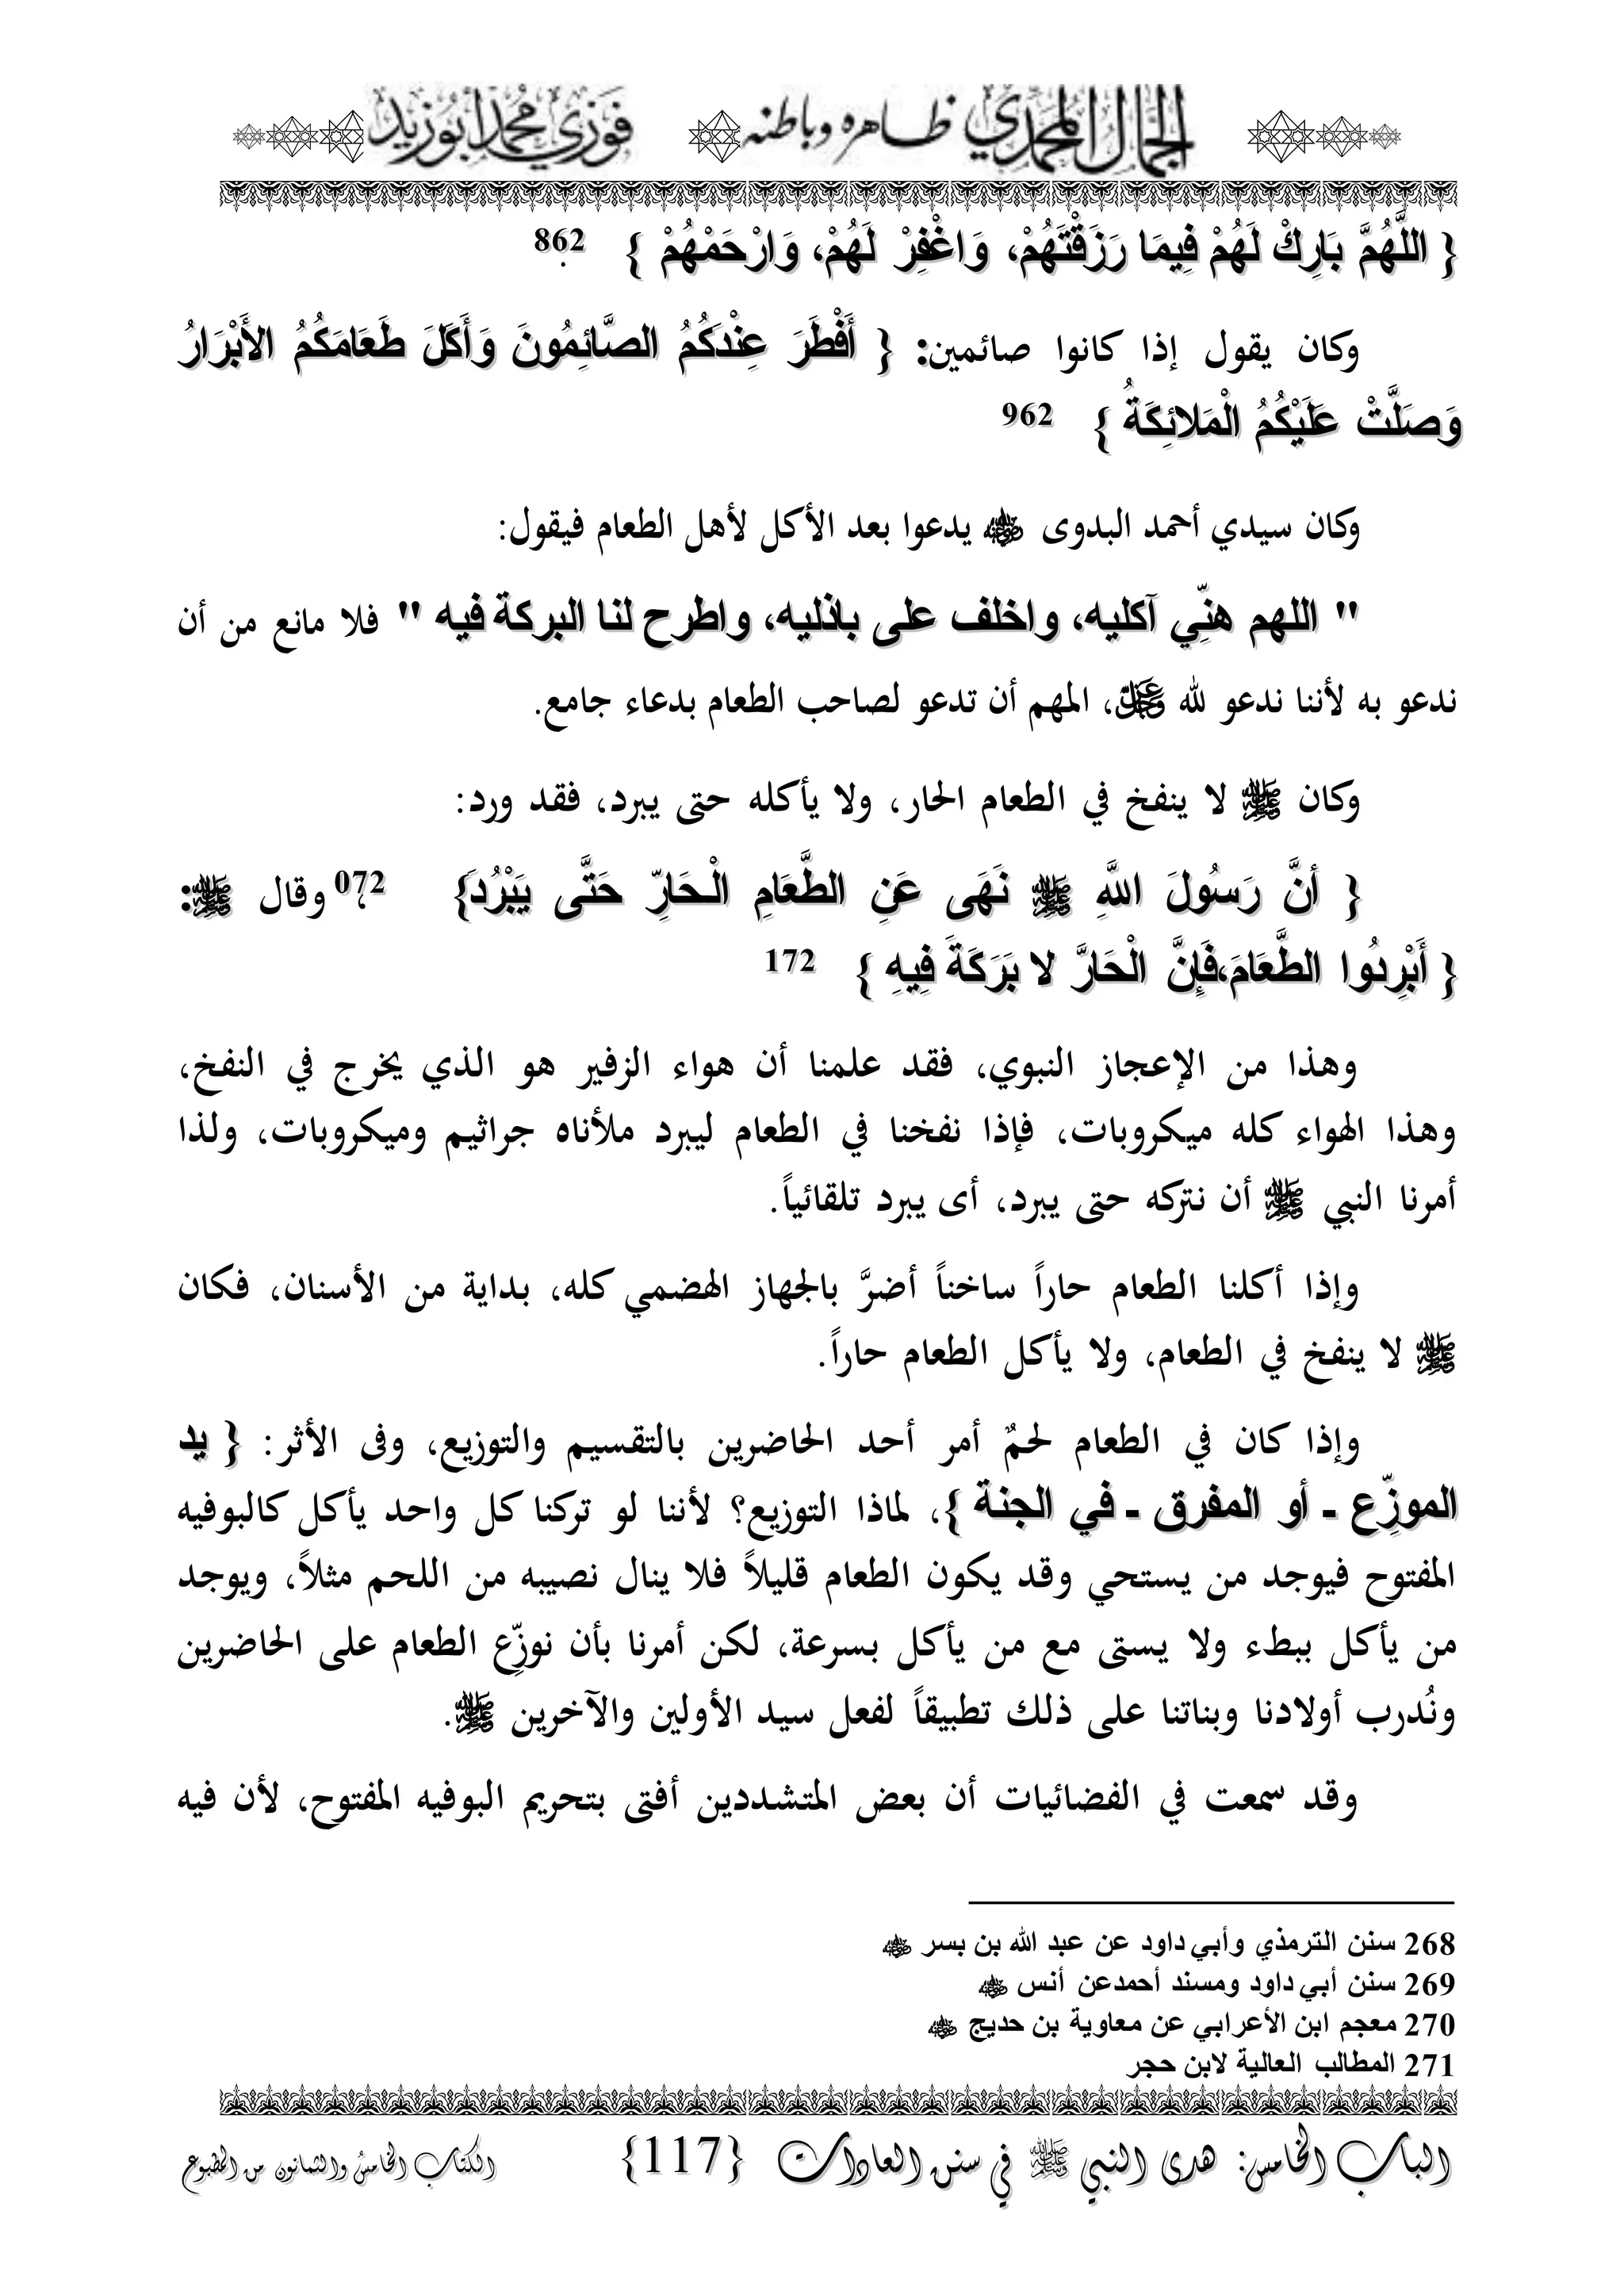 الجمال المحمدي ظاهره وباطنه فوزي محمد أبوزيد
{ اللَّهُمَّ بَارِكْ لَهُمْ فِيمَا رَزَقْتَهُمْ، وَاغْفِرْ لَهُمْ، وَارْحَمْهُمْ } 862.
وكان يقول إذا كانوا صائمين: { أَفْطَرَ عِنْدَكُمُ الصَّائِمُونَ وَأَكَلَ طَعَامَكُمُ الأَبْرَارُ
وَصَلَّتْ عَلَيْكُمُ الْمَلائِكَةُ } 962
وكان سيدي أحمد البدوى ؓ يدعوا بعد الأكل لأهل الطعام فيقول:
" اللهم هنِّي آكليه، واخلف على باذليه، واطرح لنا البركة فيه " فلا مانع من أن
ندعو به لأننا ندعو لله ﷿، المهم أن تدعو لصاحب الطعام بدعاء جامع.
وكان ﷺ لا ينفخ في الطعام الحار، ولا يأكله حتى يبرد، فقد ورد:
{ أنَّ رَسُولَ اللَّهِ ﷺ نَهَى عَنِ الطَّعَامِ الْحَارِّ حَتَّى يَبْرُدَ} 072، وقال ﷺ:
{ أَبْرِدُوا الطَّعَامَ،فَإِنَّ الْحَارَّ لا بَرَكَةَ فِيهِ } 172
وهذا من الإعجاز النبوي، فقد علمنا أن هواء الزفير هو الذي يخرج في النفخ،
وهذا الهواء كله ميكروبات، فإذا نفخنا في الطعام ليبرد ملأناه جراثيم وميكروبات، ولذا
أمرنا النبي ﷺ أن نتركه حتى يبرد، أى يبرد تلقائياً.
وإذا أكلنا الطعام حاراً ساخناً أضرَّ بالجهاز الهضمي كله، بداية من الأسنان، فكان
ﷺ لا ينفخ في الطعام، ولا يأكل الطعام حاراً.
وإذا كان في الطعام لحمٌ أمر أحد الحاضرين بالتقسيم والتوزيع، وفى الأثر: { يد
الموزِّع ـ أو المفرق ـ في الجنة }، لماذا التوزيع؟ لأننا لو تركنا كل واحد يأكل كالبوفيه
المفتوح فيوجد من يستحي وقد يكون الطعام قليلاً فلا ينال نصيبه من اللحم مثلاً، ويوجد
من يأكل ببطء ولا يستى مع من يأكل بسرعة، لكن أمرنا بأن نوزِّع الطعام على الحاضرين
ونُدرب أولادنا وبناتنا على ذلك تطبيقاً لفعل سيد الأولين والآخرين ﷺ.
وقد سمعت في الفضائيات أن بعض المتشددين أفتى بتحريم البوفيه المفتوح، لأن فيه
268 سنن الترمذي وأبي داود عن عبد الله بن بسر ؓ
269 سنن أبي داود ومسند أحمدعن أنس ؓ
270 معجم ابن الأعرابي عن معاوية بن حديج ؓ
271 المطالب العالية لابن حجر
الباب الخامس: هدى النبي ﷺ في سنن العادات {117} الكتاب الخامس والثمانون من المطبوع